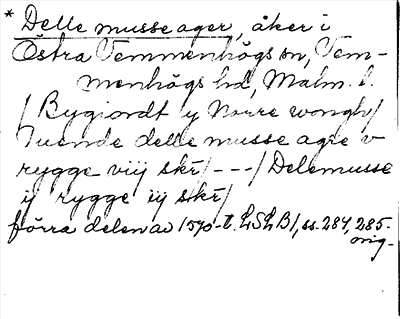 * Delle musse ager, åker i
Östra Vemmenhögs sn, Vem-
menhögs hd, Malm. l.
/ Bygiondt y Norre wongh/
Tuende delle musse agre v
rygge viij skr̄/ - - - / Delemusse
ij rygge iij skr̄/
förra delen av 1570-t. LSLB1, ss. 284, 285.
orig.